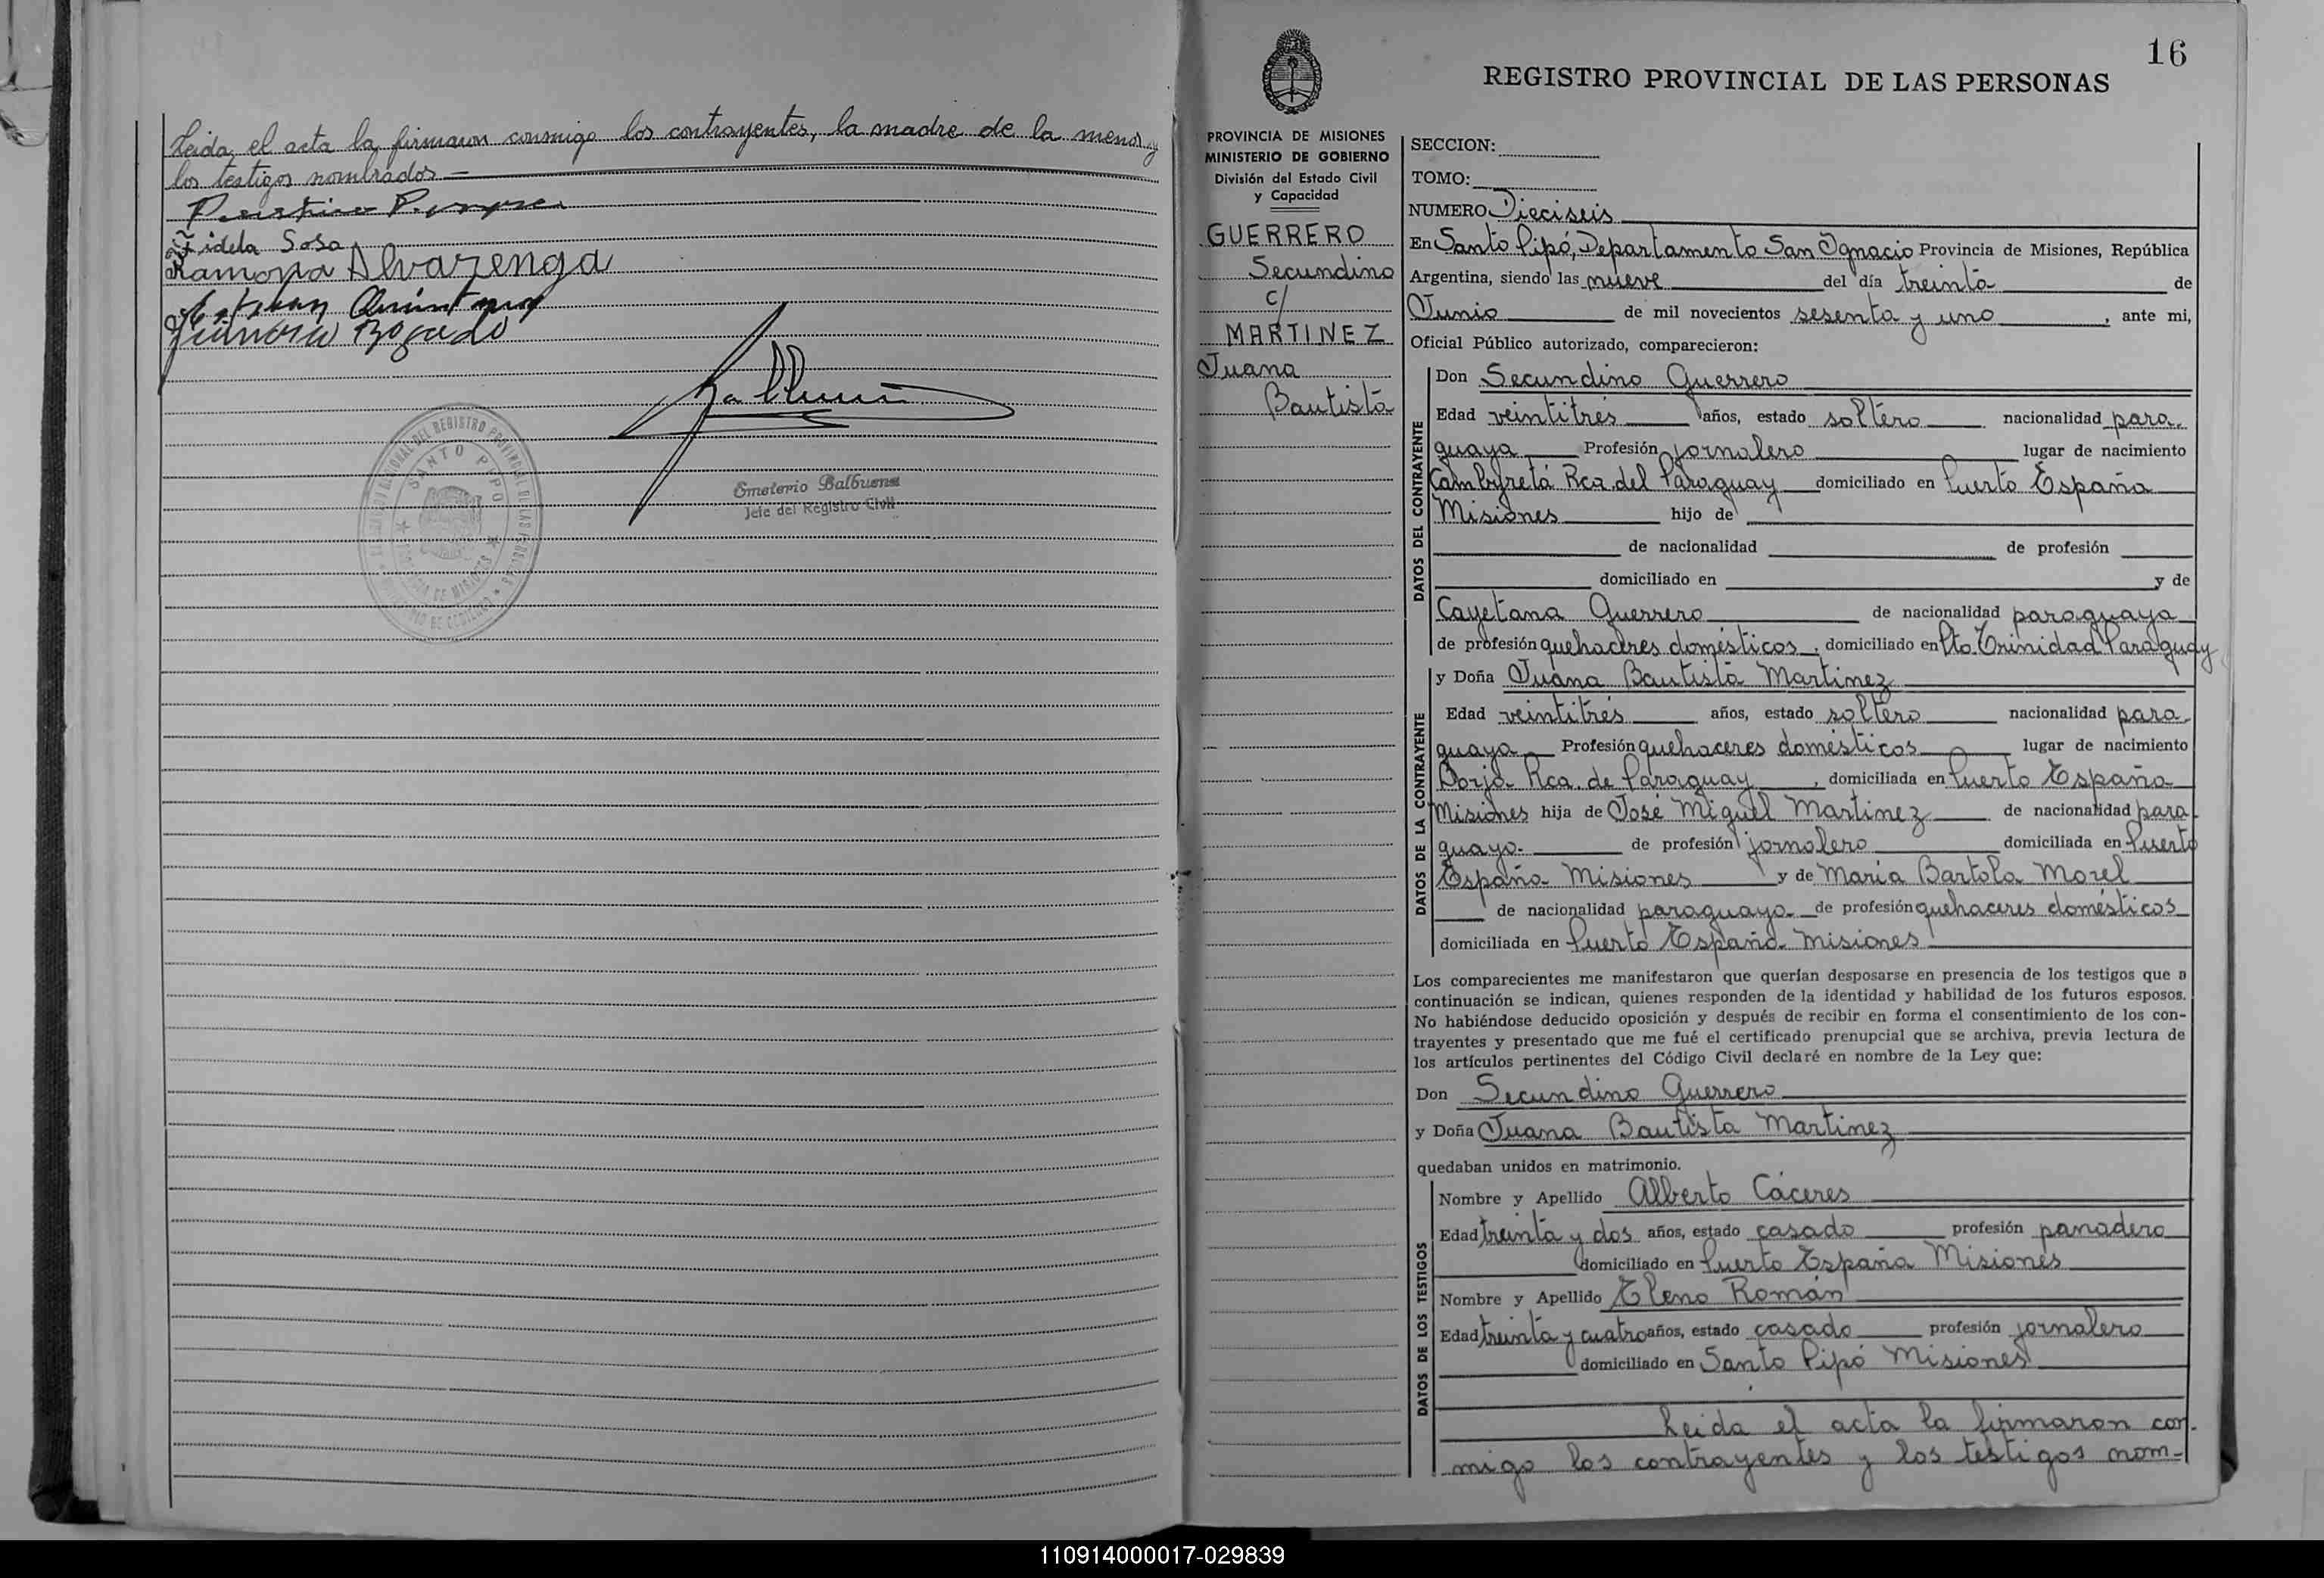 Leida el acta la firmaron conmigo los contrayentes, la madre de la menor y
los testigos nombrados.—
Fidela Sosa
Ramona Alvarenga
Esteban Quintana
Bogado
SANTO PIPO
Emeterio Balbuena
Jefe del Registro Civil
16
REGISTRO PROVINCIAL DE LAS PERSONAS
PROVINCIA DE MISIONES
MINISTERIO DE GOBIERNO
División del Estado Civil
y Capacidad
GUERRERO
Secundino
c/
MARTINEZ
Juana
Bautista
SECCION:
TOMO:
NUMERO Dieciseis
En Santo Pipó, Departamento San Ignacio Provincia de Misiones, República
Argentina, siendo las nueve del día treinta de
Junio de mil novecientos sesenta y uno, ante mi,
Oficial Público autorizado, comparecieron:
DATOS DEL CONTRAYENTE
Don Secundino Guerrero
Edad veintitrés años, estado soltero nacionalidad para-
guaya Profesión jornalero lugar de nacimiento
Cambyretá Rca. del Paraguay domiciliado en Puerto España
Misiones hijo de
de nacionalidad de profesión
domiciliado en y de
Cayetana Guerrero de nacionalidad paraguaya
de profesión quehaceres domésticos, domiciliado en Pto. Trinidad Paraguay
DATOS DE LA CONTRAYENTE
y Doña Juana Bautista Martinez
Edad veintitrés años, estado soltero nacionalidad para-
guaya Profesión quehaceres domésticos lugar de nacimiento
Borja Rca. de Paraguay, domiciliada en Puerto España
Misiones hija de José Miguel Martinez de nacionalidad para-
guaya de profesión jornalero domiciliada en Puerto
España Misiones y de María Bartola Morel
de nacionalidad paraguaya de profesión quehaceres domésticos
domiciliada en Puerto España Misiones
Los comparecientes me manifestaron que querían desposarse en presencia de los testigos que a
continuación se indican, quienes responden de la identidad y habilidad de los futuros esposos.
No habiéndose deducido oposición y después de recibir en forma el consentimiento de los con-
trayentes y presentado que me fué el certificado prenupcial que se archiva, previa lectura de
los artículos pertinentes del Código Civil declaré en nombre de la Ley que:
Don Secundino Guerrero
y Doña Juana Bautista Martinez
quedaban unidos en matrimonio.
DATOS DE LOS TESTIGOS
Nombre y Apellido Alberto Cáceres
Edad treinta y dos años, estado casado profesión panadero
domiciliado en Puerto España Misiones
Nombre y Apellido Eleno Román
Edad treinta y cuatro años, estado casado profesión jornalero
domiciliado en Santo Pipó Misiones
Leida el acta la firmaron con-
migo los contrayentes y los testigos nom-
110914000017-029839